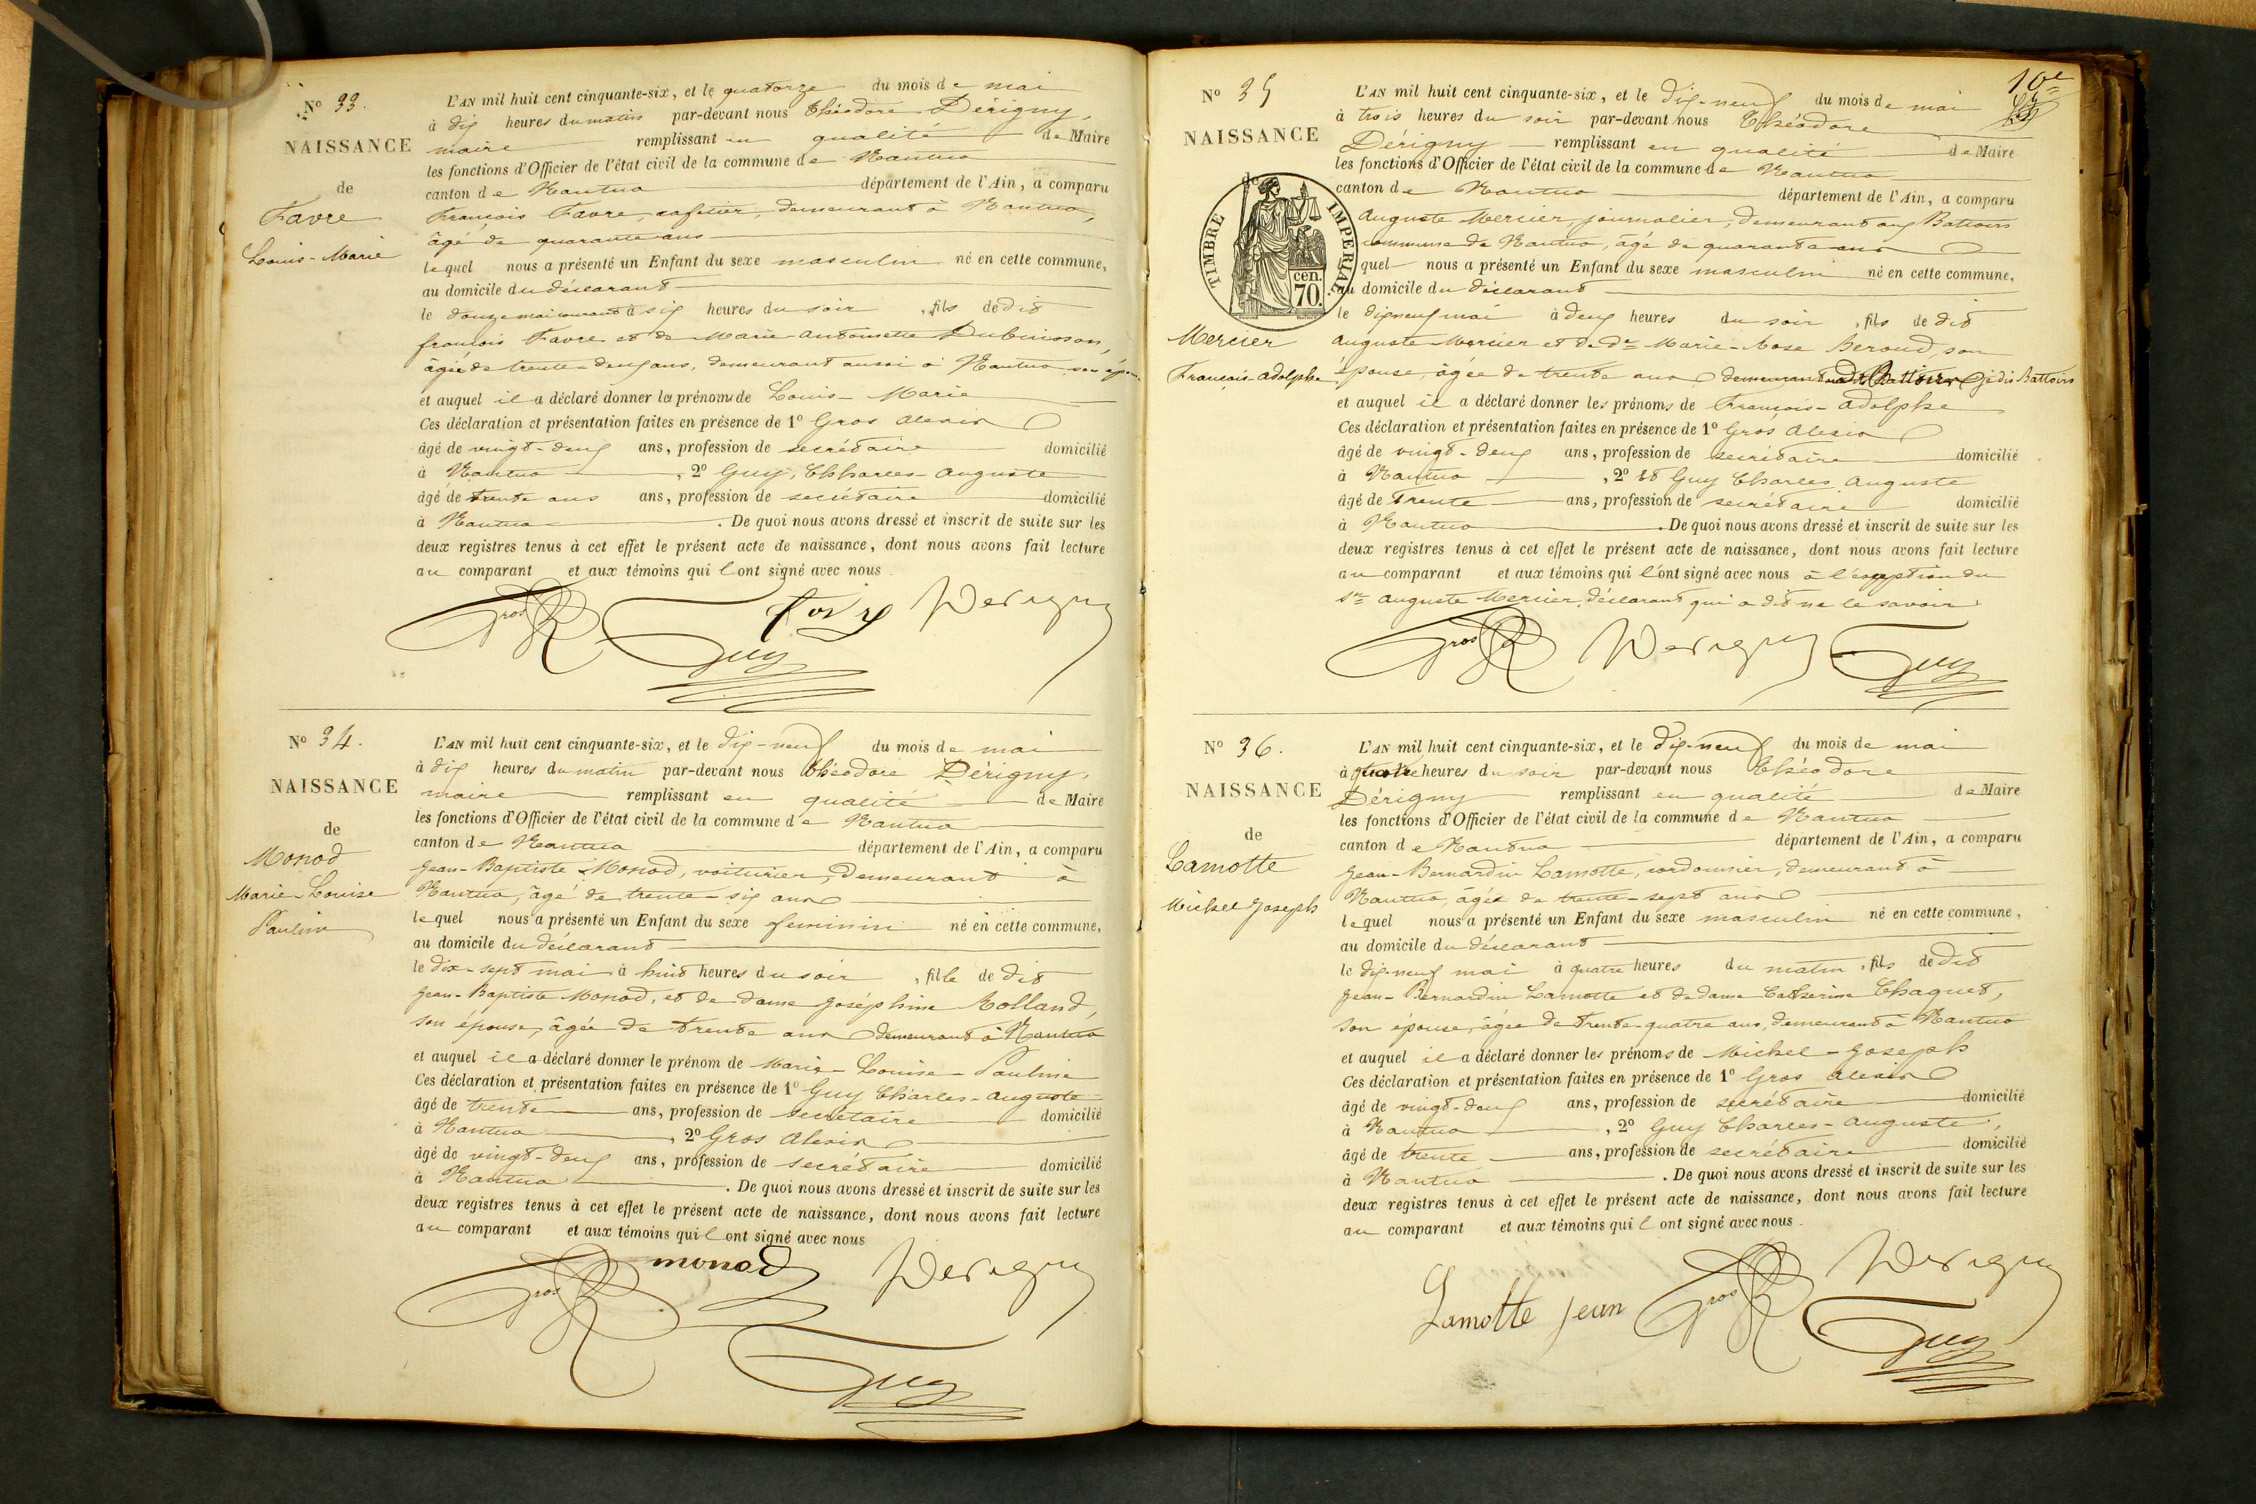 Nº 33.
NAISSANCE
de
Favre
Louis-Marie
L'AN mil huit cent cinquante-six, et le quatorze du mois de mai
à dix heures du matin par-devant nous Théodore Dérigny,
maire remplissant en qualité de Maire
les fonctions d'Officier de l'état civil de la commune de Nantua
canton de Nantua département de l'Ain, a comparu
François Favre, cafetier, demeurant à Nantua,
âgé de quarante ans
lequel nous a présenté un Enfant du sexe masculin né en cette commune,
au domicile du déclarant
le douze mai courant à six heures du soir, fils de dit
françois Favre et de Marie Antoinette Dubuisson,
âgée de trente-deux ans, demeurant aussi à Nantua son épouse
et auquel il a déclaré donner les prénoms de Louis-Marie
Ces déclaration et présentation faites en présence de 1º Gros Alexis
âgé de vingt-deux ans, profession de secrétaire domicilié
à Nantua, 2º Guy, Chharles Auguste
âgé de trente ans ans, profession de secrétaire domicilié
à Nantua. De quoi nous avons dressé et inscrit de suite sur les
deux registres tenus à cet effet le présent acte de naissance, dont nous avons fait lecture
au comparant et aux témoins qui l'ont signé avec nous
Gros Favre Derigny
Guy
Nº 34.
NAISSANCE
de
Monod
Marie-Louise
Pauline
L'AN mil huit cent cinquante-six, et le dix-neuf du mois de mai
à dix heures du matin par-devant nous Théodore Dérigny,
maire remplissant en qualité de Maire
les fonctions d'Officier de l'état civil de la commune de Nantua
canton de Nantua département de l'Ain, a comparu
Jean-Baptiste Monod, voiturier, demeurant à
Nantua, âgé de trente-six ans
lequel nous a présenté un Enfant du sexe feminin né en cette commune,
au domicile du déclarant
le dix-sept mai à huit heures du soir, fille de dit
Jean-Baptiste Monod, et de dame Joséphine Rolland,
son épouse, âgée de trente ans demeurant à Nantua
et auquel il a déclaré donner le prénom de Marie-Louise-Pauline
Ces déclaration et présentation faites en présence de 1º Guy Charles-Auguste
âgé de trente ans, profession de secrétaire domicilié
à Nantua, 2º Gros Alexis
âgé de vingt-deux ans, profession de secrétaire domicilié
à Nantua. De quoi nous avons dressé et inscrit de suite sur les
deux registres tenus à cet effet le présent acte de naissance, dont nous avons fait lecture
au comparant et aux témoins qui l'ont signé avec nous
monod Derigny
Gros
Guy
10e
Nº 35
NAISSANCE
de
TIMBRE IMPERIAL
cen.
70.
Mercier
Francois-adolphe
L'AN mil huit cent cinquante-six, et le dix-neuf du mois de mai
à trois heures du soir par-devant nous Théodore
Dérigny remplissant en qualité de Maire
les fonctions d'Officier de l'état civil de la commune de Nantua
canton de Nantua département de l'Ain, a comparu
Auguste Mercier, journalier, demeurant aux Battoirs
commune de Nantua, âgé de quarante ans
quel nous a présenté un Enfant du sexe masculin né en cette commune,
au domicile du déclarant
le dix neuf mai à deux heures du soir, fils de dit
Auguste Mercier et de de Marie-Rose Beroud, son
épouse, âgée de trente ans demeurant Battoirs
et auquel il a déclaré donner les prénoms de François-Adolphe
Ces déclaration et présentation faites en présence de 1º Gros Alexis
âgé de vingt-deux ans, profession de secrétaire domicilié
à Nantua, 2º et Guy Charles Auguste
âgé de trente ans, profession de secrétaire domicilié
à Nantua. De quoi nous avons dressé et inscrit de suite sur les
deux registres tenus à cet effet le présent acte de naissance, dont nous avons fait lecture
au comparant et aux témoins qui l'ont signé avec nous à l'exception du
sr Auguste Mercier, déclarant qui a dit ne le savoir
Gros Derigny Guy
Nº 36.
NAISSANCE
de
Lamotte
Michel Joseph
L'AN mil huit cent cinquante-six, et le dix-neuf du mois de mai
à quatre heures du soir par-devant nous Théodore
Dérigny remplissant en qualité de Maire
les fonctions d'Officier de l'état civil de la commune de Nantua
canton de Nantua département de l'Ain, a comparu
Jean-Bernardin Lamotte, cordonnier, demeurant à
Nantua, âgée de trente-sept ans
lequel nous a présenté un Enfant du sexe masculin né en cette commune,
au domicile du déclarant
le dix-neuf mai à quatre heures du matin, fils de dit
Jean-Bernardin Lamotte et de dame Catherine Chaquet,
son épouse, âgée de trente-quatre ans, demeurant à Nantua
et auquel il a déclaré donner les prénoms de Michel-Joseph
Ces déclaration et présentation faites en présence de 1º Gros Alexis
âgé de vingt-deux ans, profession de secrétaire domicilié
à Nantua, 2º Guy Charles-Auguste,
âgé de trente ans, profession de secrétaire domicilié
à Nantua. De quoi nous avons dressé et inscrit de suite sur les
deux registres tenus à cet effet le présent acte de naissance, dont nous avons fait lecture
au comparant et aux témoins qui l ont signé avec nous.
Lamotte jean Gros Derigny
Guy